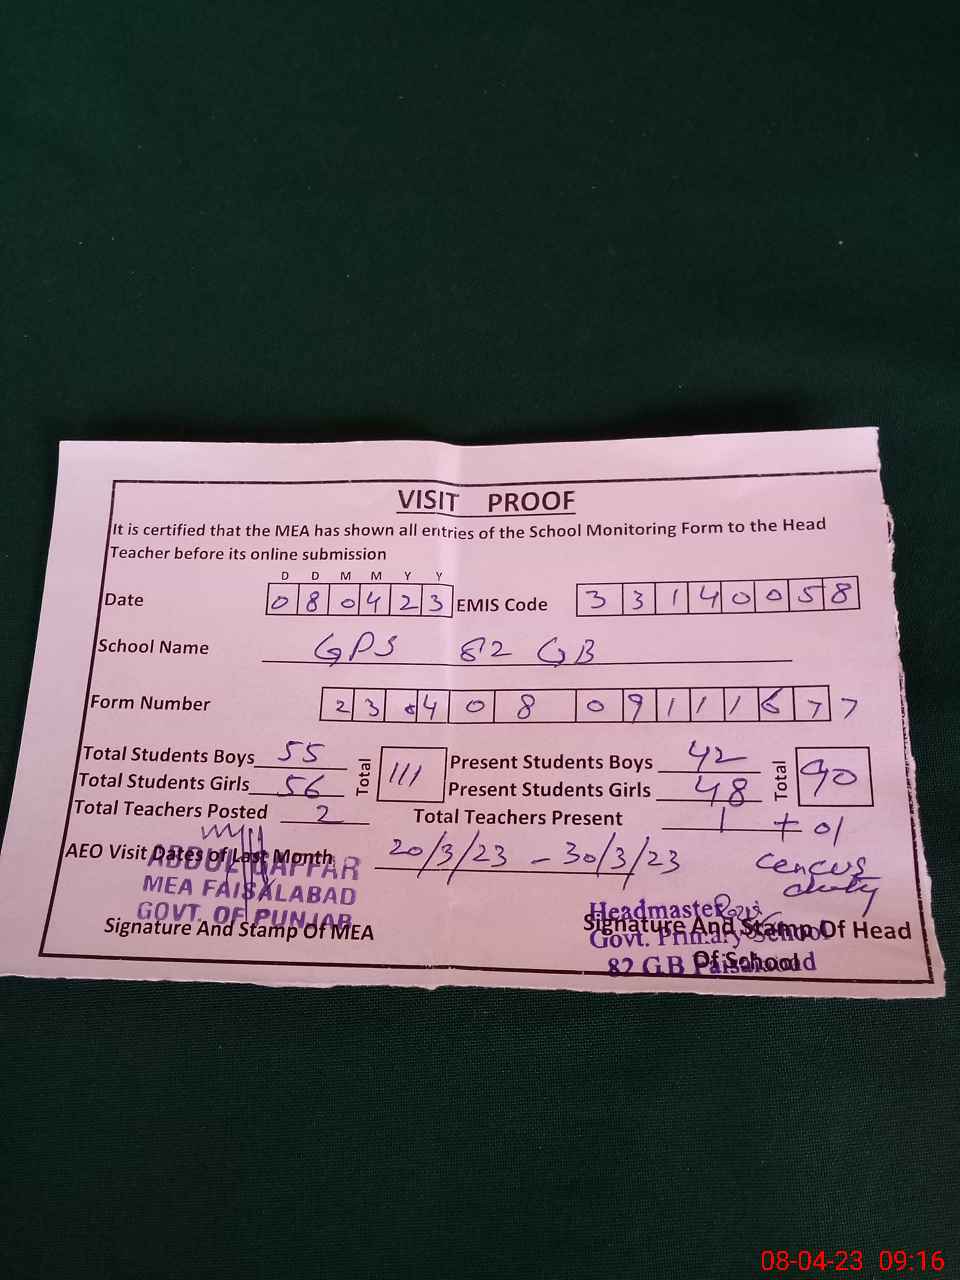 VISIT PROOF
It is certified that the MEA has shown all entries of the School Monitoring Form to the Head
Teacher before its online submission
D D M M Y Y
Date 0 8 0 4 2 3 EMIS Code 3 3 1 4 0 0 5 8
School Name GPS 82 GB
Form Number 2 3 0 4 0 8 0 9 1 1 1 6 7 7
Total Students Boys 55 Total 111 Present Students Boys 42 Total 90
Total Students Girls 56 Present Students Girls 48
Total Teachers Posted 2 Total Teachers Present 1 + 01
cencus
duty
AEO Visit Dates of Last Month 20/3/23 - 30/3/23
ABDUL GAFFAR
MEA FAISALABAD
GOVT. OF PUNJAB
Signature And Stamp Of MEA
Headmaster
Govt. Primary School
82 G.B Faisalabad
Signature And Stamp Of Head
Of School
08-04-23 09:16